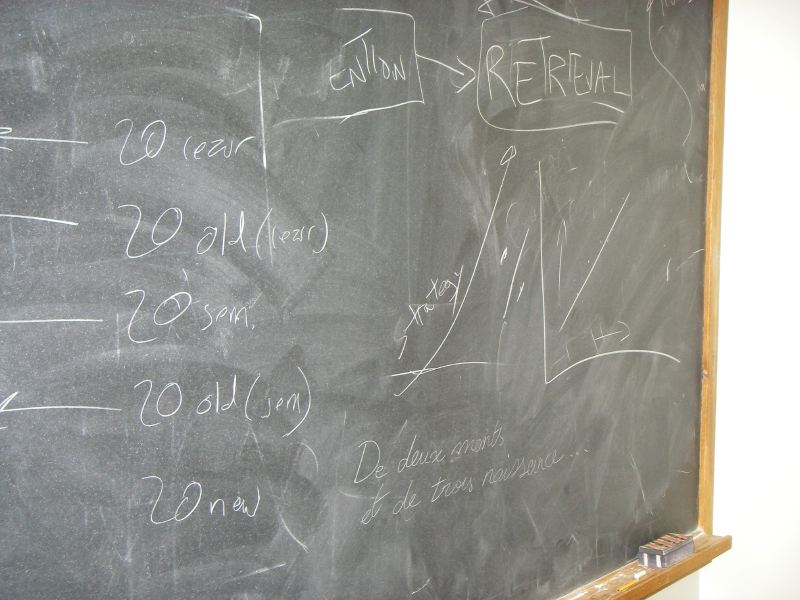 ENTION
RETRIEVAL
20 rezur
20 old (rezur)
strategy
20 sem.
20 old (sem)
De deux morts
et de trois naissance...
20 new